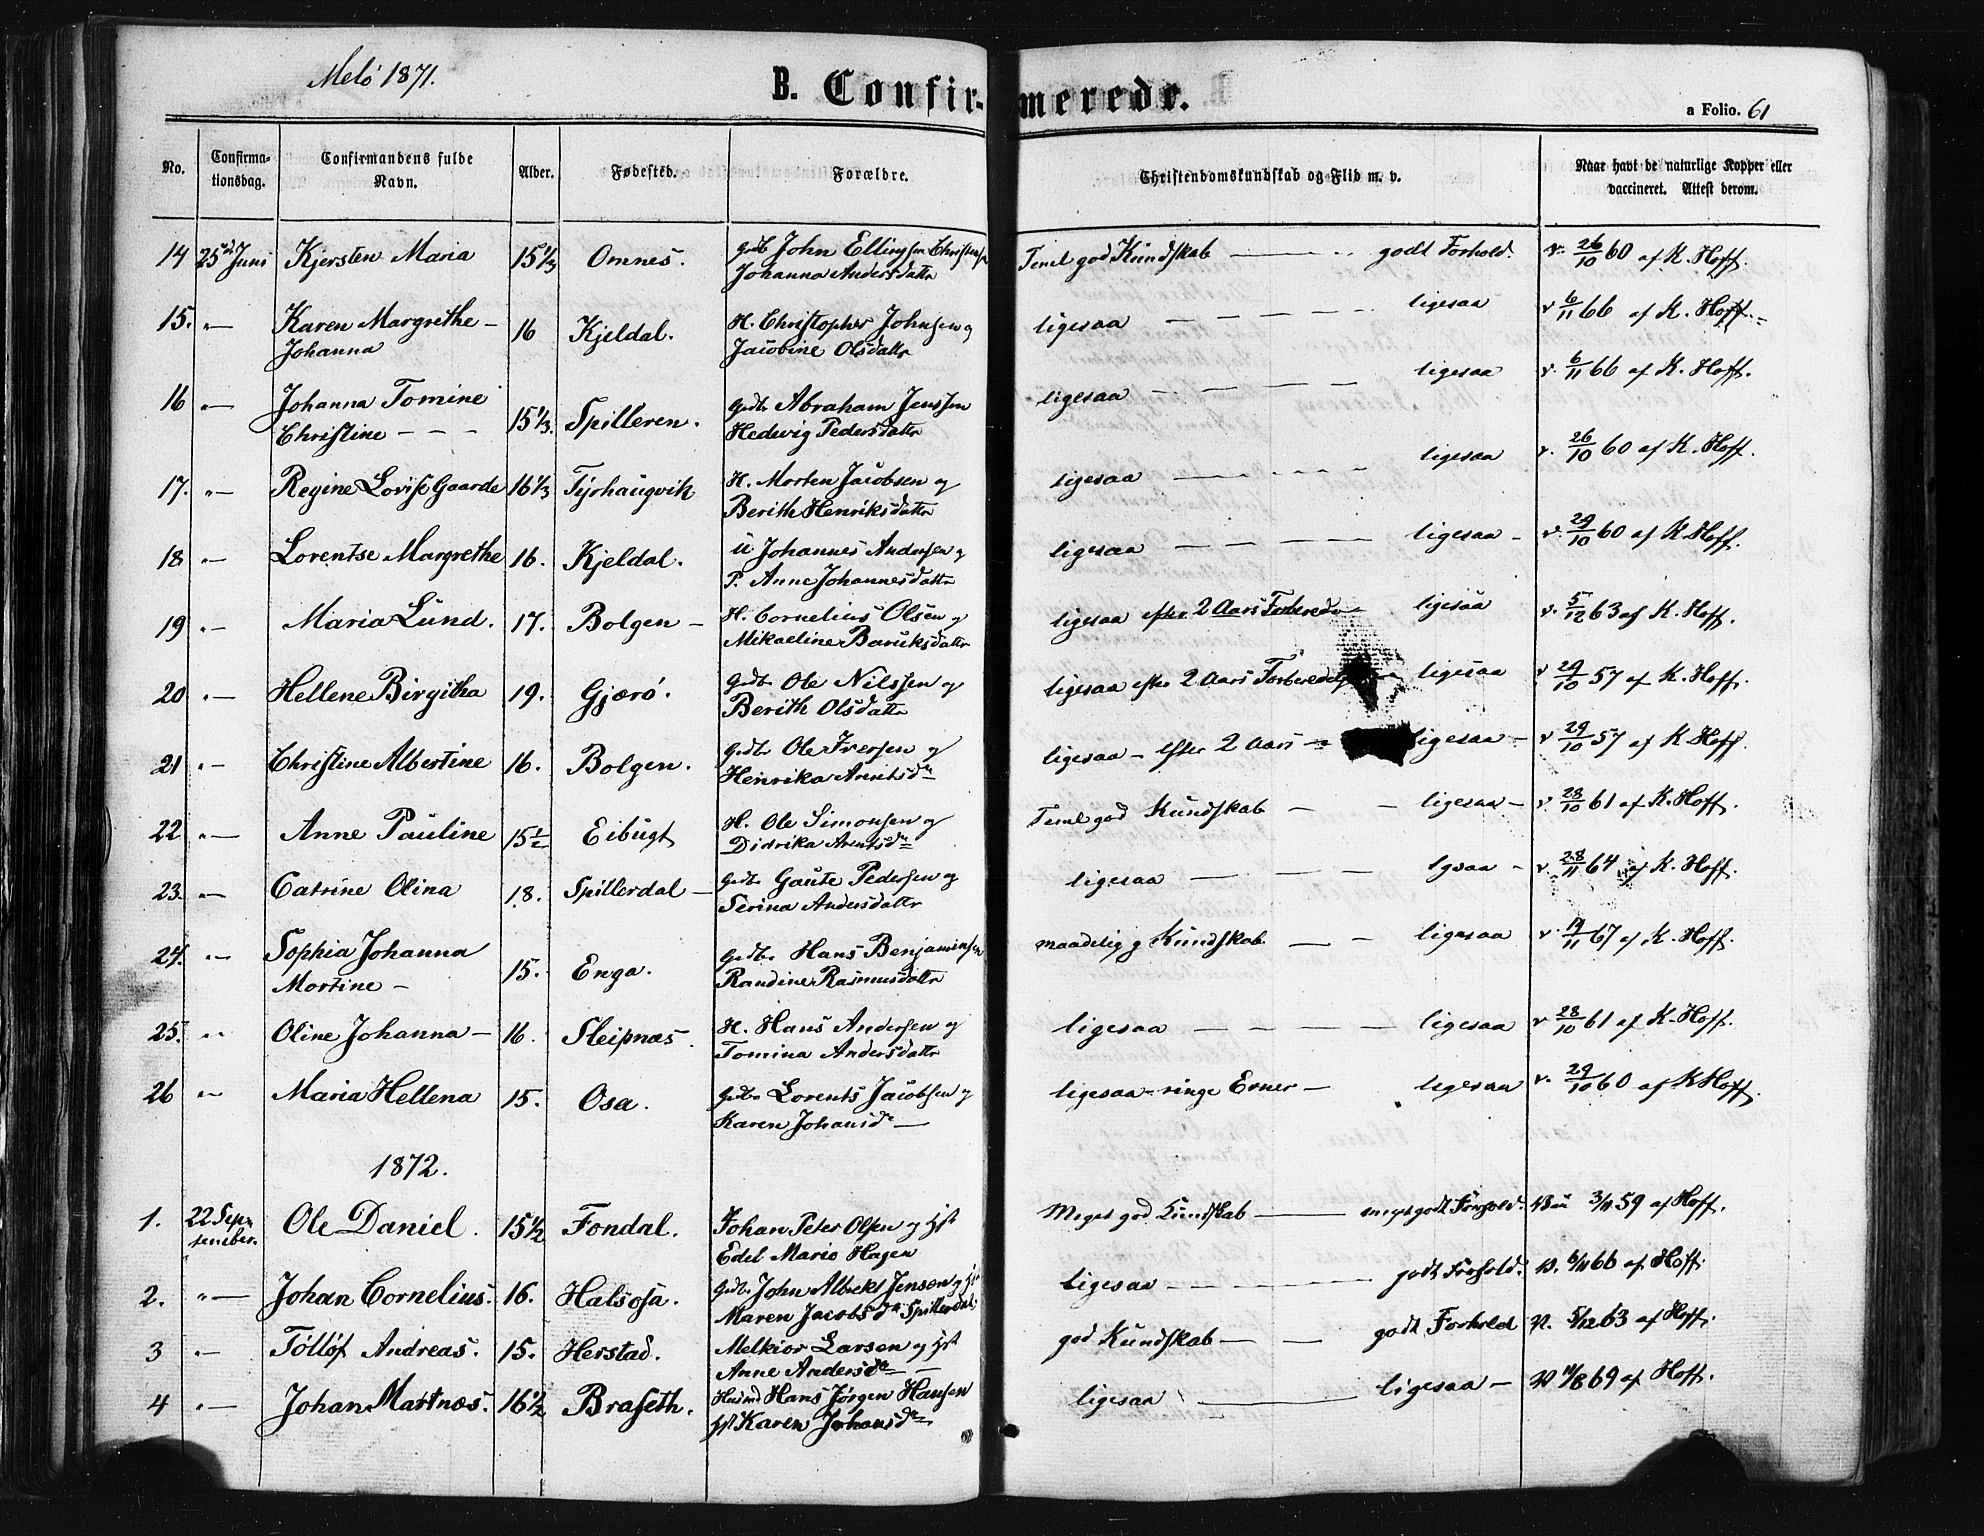 Melö 1871.
B. Confirmerede.
a Folio. 61
No. Confirmationsdag. Confirmandens fulde Navn. Alder. Fødested. Forældre. Christendomskundskab og Flid m. v. Naar havt de naturlige Kopper eller vaccineret. Attest derom.
14 25de Juni Kjersten Maria 15 1/3 Omnes. Gdbr John Ellingsen
Johanna Andersdattr Teml god Kundskab — godt Forhold. v. 26/10 60 af K. Hoff.
15. " — Karen Margrethe - 16 Kjeldal. H. Christopher Johnsen og
Johanna Jacobine Olsdattr ligesaa — ligesaa v 6/11 66 af K. Hoff.
16 " — Johanna Tomine 15 1/3. Spilleren. Gdbr Abraham Jenssen
Christine - - - Hedevig Pedersdattr ligesaa — ligesaa v. 6/11 66 af K. Hoff.
17. " — Regine Lovise Gaarde 16 1/3 Tyrhaugvik H. Morten Jacobsen og
Berith Henriksdattr ligesaa — ligesaa v. 26/10 60 af K. Hoff.
18 " — Lorentse Margrethe 16. Kjeldal. U Johannes Andersen og
P. Anne Johannesdattr ligesaa — ligesaa - v. 29/10 60 af K. Hoff.
19 " — Maria Lund. 17. Bolgen - H. Cornelius Olsen og
Mikaeline Baruksdattr ligesaa efter 2 Aars Forbered — ligesaa v. 5/12 63 af K. Hoff.
20 " — Hellene Birgitha 19. Gjærö. Gdbr Ole Nilssen og
Berith Olsdattr ligesaa efter 2 Aars ligesaa v 29/10 57 af K. Hoff.
21 " — Christine Albertine 16. Bolgen. Gdbr Ole Iversen og
Henrika Arentsdr ligesaa - efter 2 Aars - ligesaa - v 29/10 57 af K Hoff.
22 " — Anne Pauline 15 1/2 Eibugt H. Ole Simonsen og
Didrika Arentsdr Teml god Kundskab — ligesaa - v 28/10 61 af K. Hoff.
23. " — Catrine Olina 18. Spillerdal — Gdbr Gaute Pedersen og
Serina Andersdattr ligesaa — lgsaa - v 28/11 64 af K. Hoff.
24. " — Sophia Johanna 15. Enga. Gdbr Hans Benjaminsen
Mortine - Randine Rasmusdattr maadelig Kundskab — ligesaa v. 11 67 af K. Hoff.
25. " Oline Johanna - 16. Sleipnæs. H. Hans Andersen og
Tomina Andersdattr ligesaa — ligesaa v 28/10 61 af K. Hoff.
26 " Maria Hellena 15. Osa. Gdbr Lorents Jacobsen og
Karen Johansdr — ligesaa - ringe Evner — ligesaa v. 29/10 60 af K Hoff.
1872.
1. 22 September. Ole Daniel. 15 1/2 Fondal. Johan Peter Olsen og Hst
Edel Maria Hagen Meget god Kundskab — meget godt Forhold. 3/11 59 af Hoff.
2. " — Johan Cornelius. 16. Halsosa. Gdbr John Albrekt Jensen og Hst
Maren Jacobsdr Spillerdal ligesaa — godt Forhold. V. 6/11 66 af Hoff.
3 " — Tóllóf Andreas. 15. Herstad. Melkior Larsen og Hst
Anne Andersdr god Kundskab — godt Forhold V. 5/12 63 af Hoff.
4 " — Johan Martnæs. 16 1/2 Braseth. Husmd Hans Jørgen Hansen
Hst Karen Johansdr ligesaa — ligesaa — V 11/8 69 af Hoff.